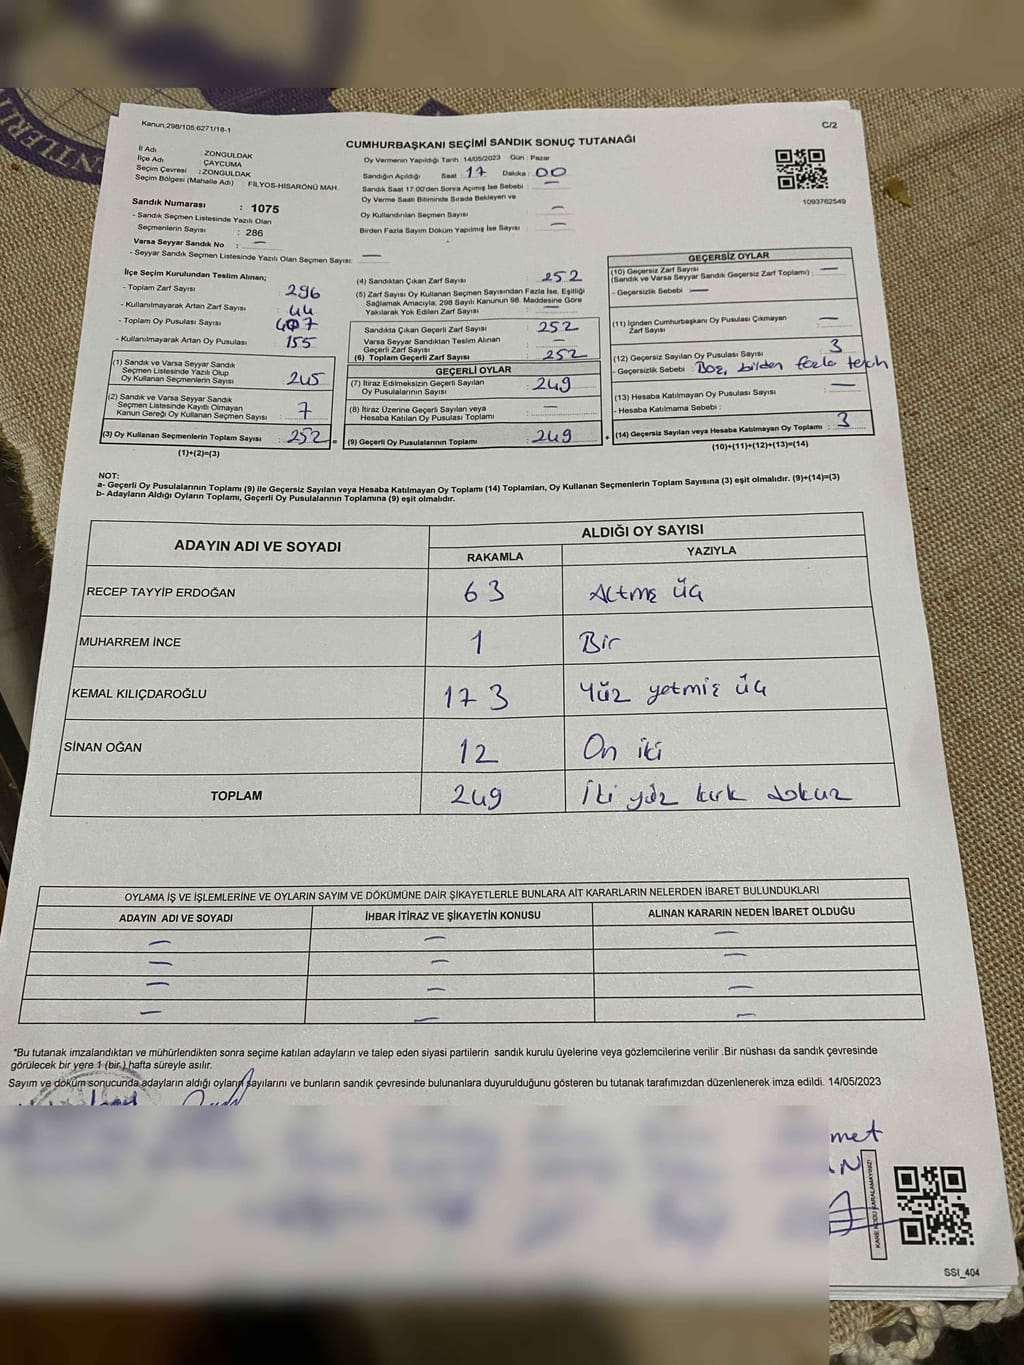 Kanun;298/105,6271/18-1
C/2
CUMHURBAŞKANI SEÇİMİ SANDIK SONUÇ TUTANAĞI
İl Adı : ZONGULDAK
İlçe Adı : ÇAYCUMA
Seçim Çevresi : ZONGULDAK
Seçim Bölgesi (Mahalle Adı) : FİLYOS-HİSARÖNÜ MAH.
Oy Vermenin Yapıldığı Tarih : 14/05/2023 Gün : Pazar
Sandığın Açıldığı Saat : 17 Dakika : 00
Sandık Saat 17:00'den Sonra Açımış İse Sebebi : —
Oy Verme Saati Bitiminde Sırada Bekleyen ve
Oy Kullandırılan Seçmen Sayısı : —
Birden Fazla Sayım Döküm Yapılmış İse Sayısı : —
1093762549
Sandık Numarası : 1075
- Sandık Seçmen Listesinde Yazılı Olan
Seçmenlerin Sayısı : 286
Varsa Seyyar Sandık No : —
- Seyyar Sandık Seçmen Listesinde Yazılı Olan Seçmen Sayısı: —
İlçe Seçim Kurulundan Teslim Alınan;
- Toplam Zarf Sayısı : 296
- Kullanılmayarak Artan Zarf Sayısı : 44
- Toplam Oy Pusulası Sayısı : 407
- Kullanılmayarak Artan Oy Pusulası : 155
(1) Sandık ve Varsa Seyyar Sandık
Seçmen Listesinde Yazılı Olup
Oy Kullanan Seçmenlerin Sayısı : 245
(2) Sandık ve Varsa Seyyar Sandık
Seçmen Listesinde Kayıtlı Olmayan
Kanun Gereği Oy Kullanan Seçmen Sayısı : 7
(3) Oy Kullanan Seçmenlerin Toplam Sayısı : 252 =
(1)+(2)=(3)
(4) Sandıktan Çıkan Zarf Sayısı : 252
(5) Zarf Sayısı Oy Kullanan Seçmen Sayısından Fazla İse, Eşitliği
Sağlamak Amacıyla; 298 Sayılı Kanunun 98. Maddesine Göre
Yakılarak Yok Edilen Zarf Sayısı : —
Sandıkta Çıkan Geçerli Zarf Sayısı : 252
Varsa Seyyar Sandıktan Teslim Alınan
Geçerli Zarf Sayısı : —
(6) Toplam Geçerli Zarf Sayısı : 252
GEÇERLİ OYLAR
(7) İtiraz Edilmeksizin Geçerli Sayılan
Oy Pusulalarının Sayısı : 249
(8) İtiraz Üzerine Geçerli Sayılan veya
Hesaba Katılan Oy Pusulası Toplamı : —
(9) Geçerli Oy Pusulalarının Toplamı : 249 +
GEÇERSİZ OYLAR
(10) Geçersiz Zarf Sayısı : —
(Sandık ve Varsa Seyyar Sandık Geçersiz Zarf Toplamı)
- Geçersizlik Sebebi : —
(11) İçinden Cumhurbaşkanı Oy Pusulası Çıkmayan
Zarf Sayısı : —
(12) Geçersiz Sayılan Oy Pusulası Sayısı : 3
- Geçersizlik Sebebi : Boş, birden fazla tercih
(13) Hesaba Katılmayan Oy Pusulası Sayısı : —
- Hesaba Katılmama Sebebi :
(14) Geçersiz Sayılan veya Hesaba Katılmayan Oy Toplamı : 3
(10)+(11)+(12)+(13)=(14)
NOT:
a- Geçerli Oy Pusulalarının Toplamı (9) ile Geçersiz Sayılan veya Hesaba Katılmayan Oy Toplamı (14) Toplamları, Oy Kullanan Seçmenlerin Toplam Sayısına (3) eşit olmalıdır. (9)+(14)=(3)
b- Adayların Aldığı Oyların Toplamı, Geçerli Oy Pusulalarının Toplamına (9) eşit olmalıdır.
ADAYIN ADI VE SOYADI
ALDIĞI OY SAYISI
RAKAMLA YAZIYLA
RECEP TAYYİP ERDOĞAN 63 Altmış üç
MUHARREM İNCE 1 Bir
KEMAL KILIÇDAROĞLU 173 Yüz yetmiş üç
SİNAN OĞAN 12 On iki
TOPLAM 249 İki yüz kırk dokuz
OYLAMA İŞ VE İŞLEMLERİNE VE OYLARIN SAYIM VE DÖKÜMÜNE DAİR ŞİKAYETLERLE BUNLARA AİT KARARLARIN NELERDEN İBARET BULUNDUKLARI
ADAYIN ADI VE SOYADI İHBAR İTİRAZ VE ŞİKAYETİN KONUSU ALINAN KARARIN NEDEN İBARET OLDUĞU
— — —
— — —
— — —
— — —
*Bu tutanak imzalandıktan ve mühürlendikten sonra seçime katılan adayların ve talep eden siyasi partilerin sandık kurulu üyelerine veya gözlemcilerine verilir .Bir nüshası da sandık çevresinde
görülecek bir yere 1 (bir ) hafta süreyle asılır.
Sayım ve döküm sonucunda adayların aldığı oyların sayılarını ve bunların sandık çevresinde bulunanlara duyurulduğunu gösteren bu tutanak tarafımızdan düzenlenerek imza edildi. 14/05/2023
met
AN
KARE KODU KARALAMAYINIZ!
SSI_404